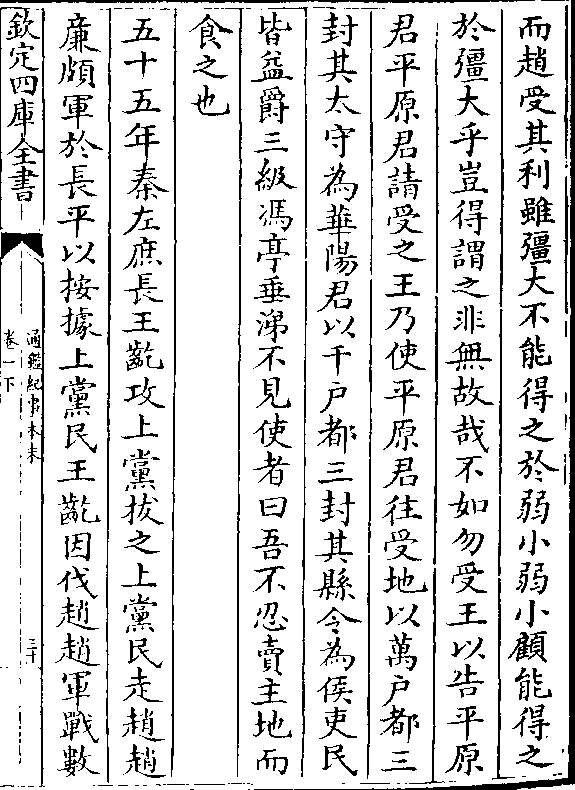 而趙受其利雖彊大不能得之於弱小弱小顧能得之
於彊大乎豈得謂之非無故哉不如勿受王以告平原
君平原君請受之王乃使平原君往受地以萬戶都三
封其太守為華陽君以千戶都三封其縣令為侯吏民
皆益爵三級馮亭垂涕不見使者曰吾不忍賣主地而
食之也
五十五年秦左庶長王齕攻上黨拔之上黨民走趙趙
廉頗軍於長平以按據上黨民王齕因伐趙趙軍戰數
欽定四庫全書
通鑑紀事本末
卷一下
三十